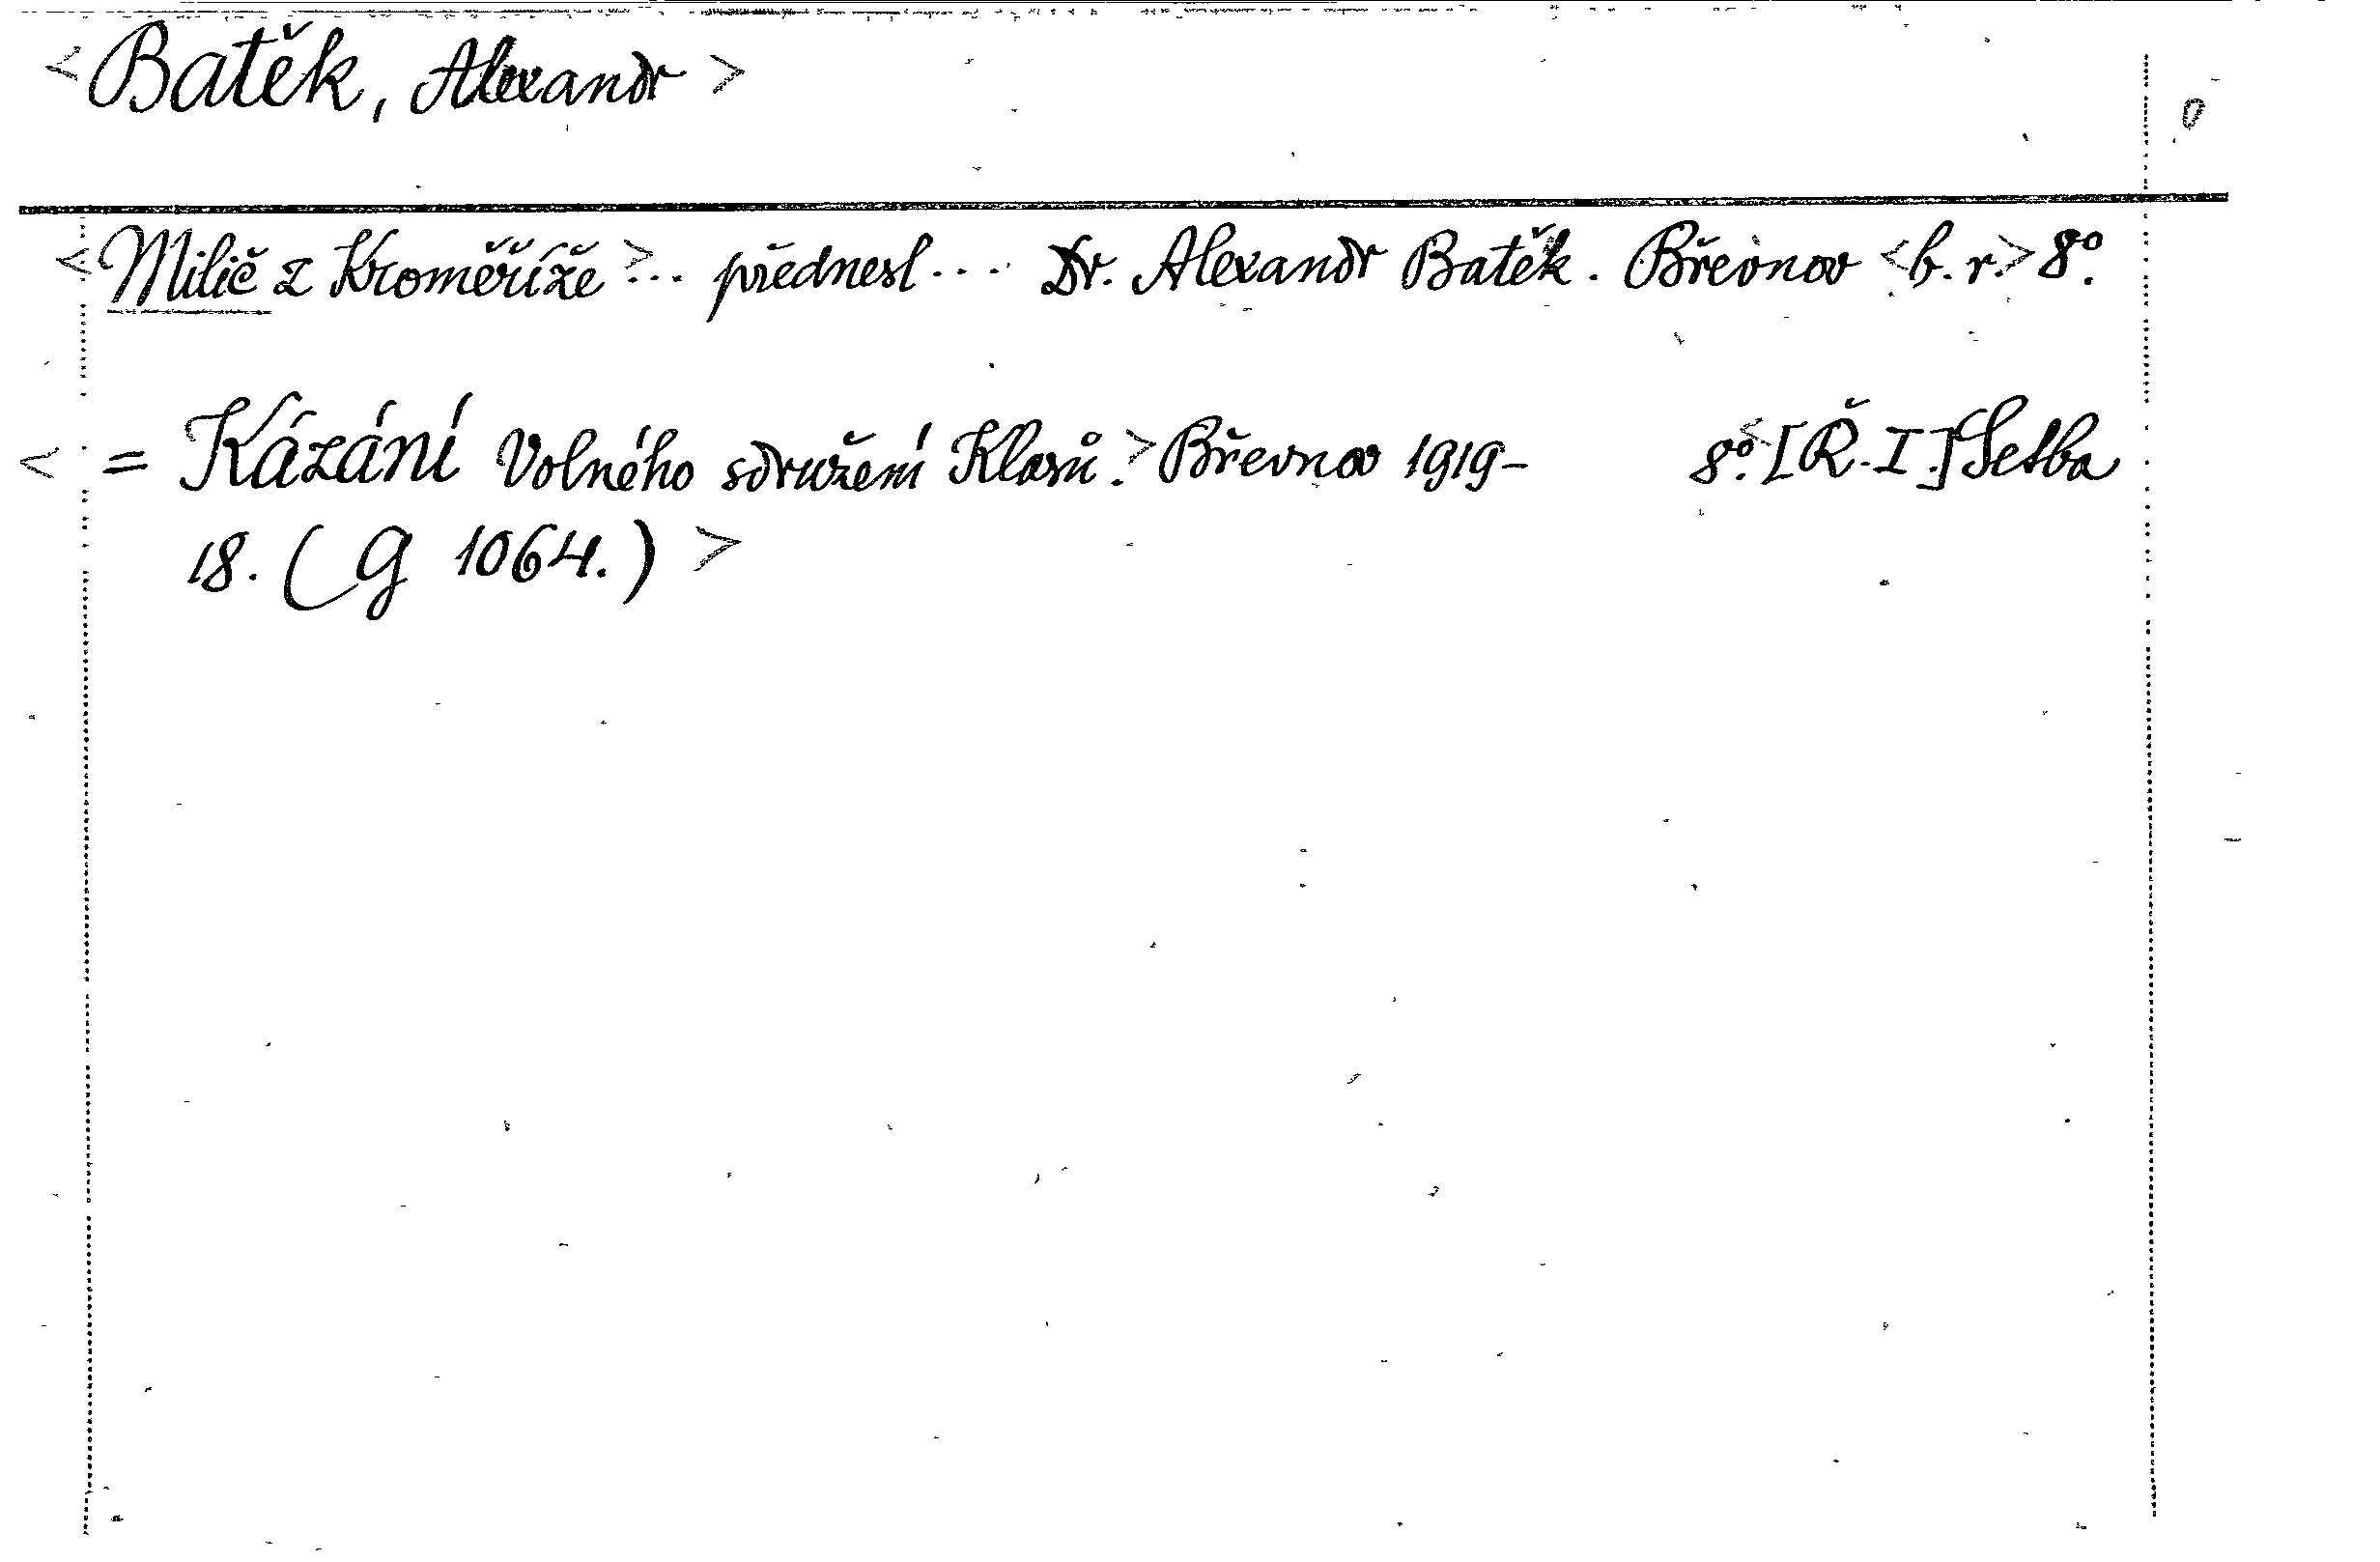 <Batěk, Alexandr>
<Milič z Kroměříže>... přednesl.... Dr. Alexandr Batěk. Břevnov <b. r.> 8º.
< = Kázání Volného sdružení Klasů.> Břevnov 1919- 8º. <[Ř. I.] Setba
18. (G 1064.) >